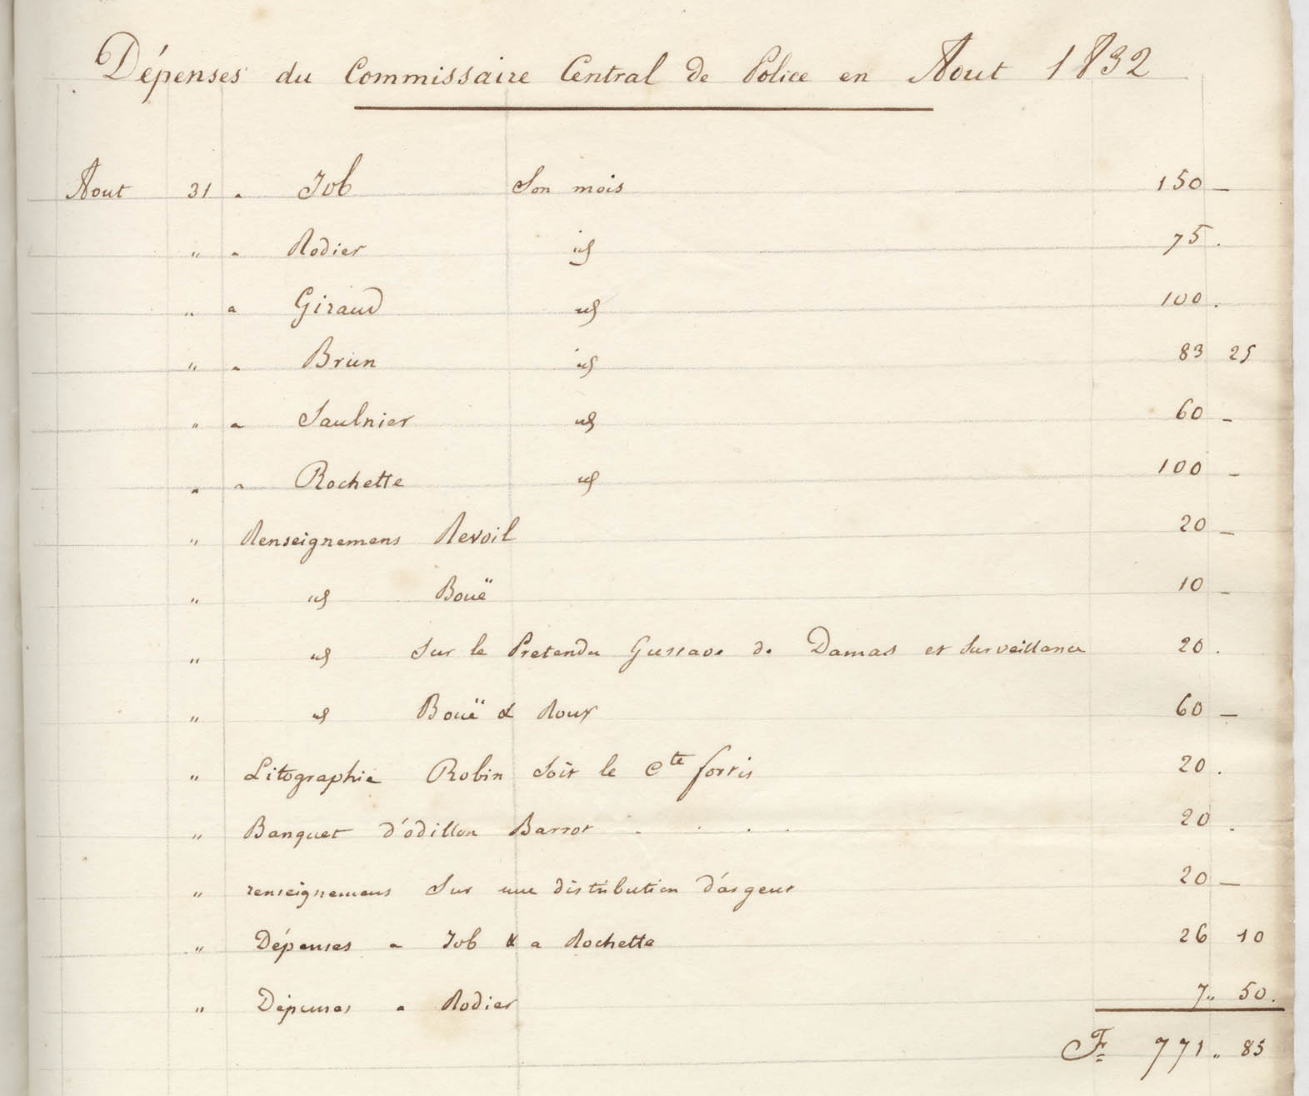 Dépenses du Commissaire Central de Police en Aout 1832
Aout 31 a Job Son mois 150 –
" a Rodier id 75 .
" a Giraud id 100 .
" a Brun id 83 25
" a Saulnier id 60 –
" a Rochette id 100 –
" Renseignemens Revoil 20 –
" id Bouë 10 –
" id Sur le Pretendu Gustave de Damas et Surveillance 20 .
" id Bouë & Roux 60 –
" Litographie Robin Soit le Cte fortis 20 .
" Banquet d'odillon Barrot . . . . 20 .
" renseignemens Sur une distribution d'argent 20 –
" Dépenses a Job & a Rochette 26 10
" Dépenses a Rodier 7 " 50 .
Fr 771 " 85